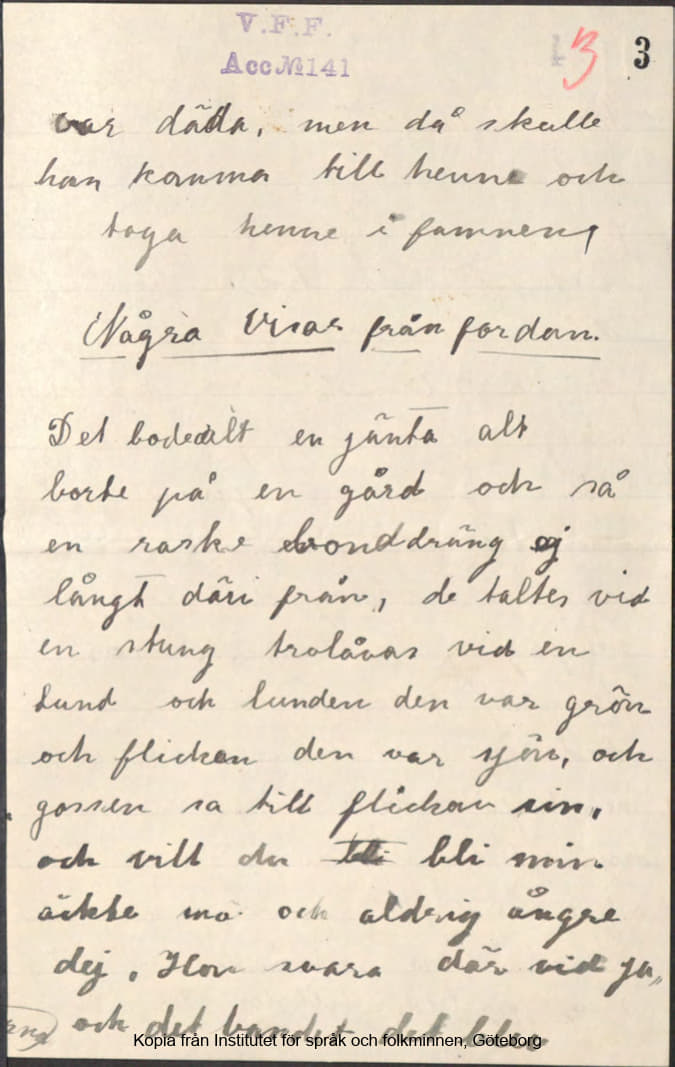 V.F.F.
Acc№141
3
3
var däda, men då skulle
han komma till henne och
taga henne i famnen,
Några Visor från fordom.
Det bodde ett en jänta alt
borte på en gård och så
en raske bonddräng ej
långt däri från, de taltes vid
en stung trolåvas vid en
Lund och lunden den var grön
och flickan den var sjön, och
gossen sa till flickan sin,
och vill du bli bli min
äckte mö och aldrig ångre
dej, Hon svara där vid ja,,
och det bandet det blev
Kopia från Institutet för språk och folkminnen, Göteborg